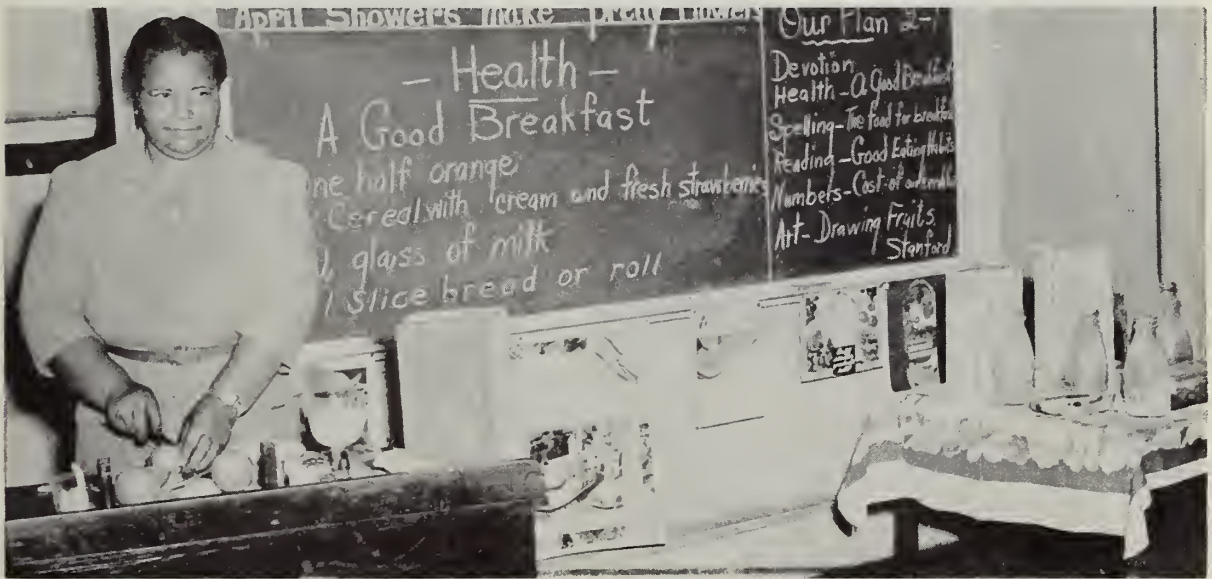 April Showers make pretty flowers
- Health -
A Good Breakfast
one half orange
Cereal with cream and fresh strawberries
glass of milk
1 slice bread or roll
Our Plan 2-1
Devotion
Health - A Good Breakfast
Spelling - The food for breakfast
Reading - Good Eating Habits
Numbers - Cost of
Art - Drawing Fruits
Stanford